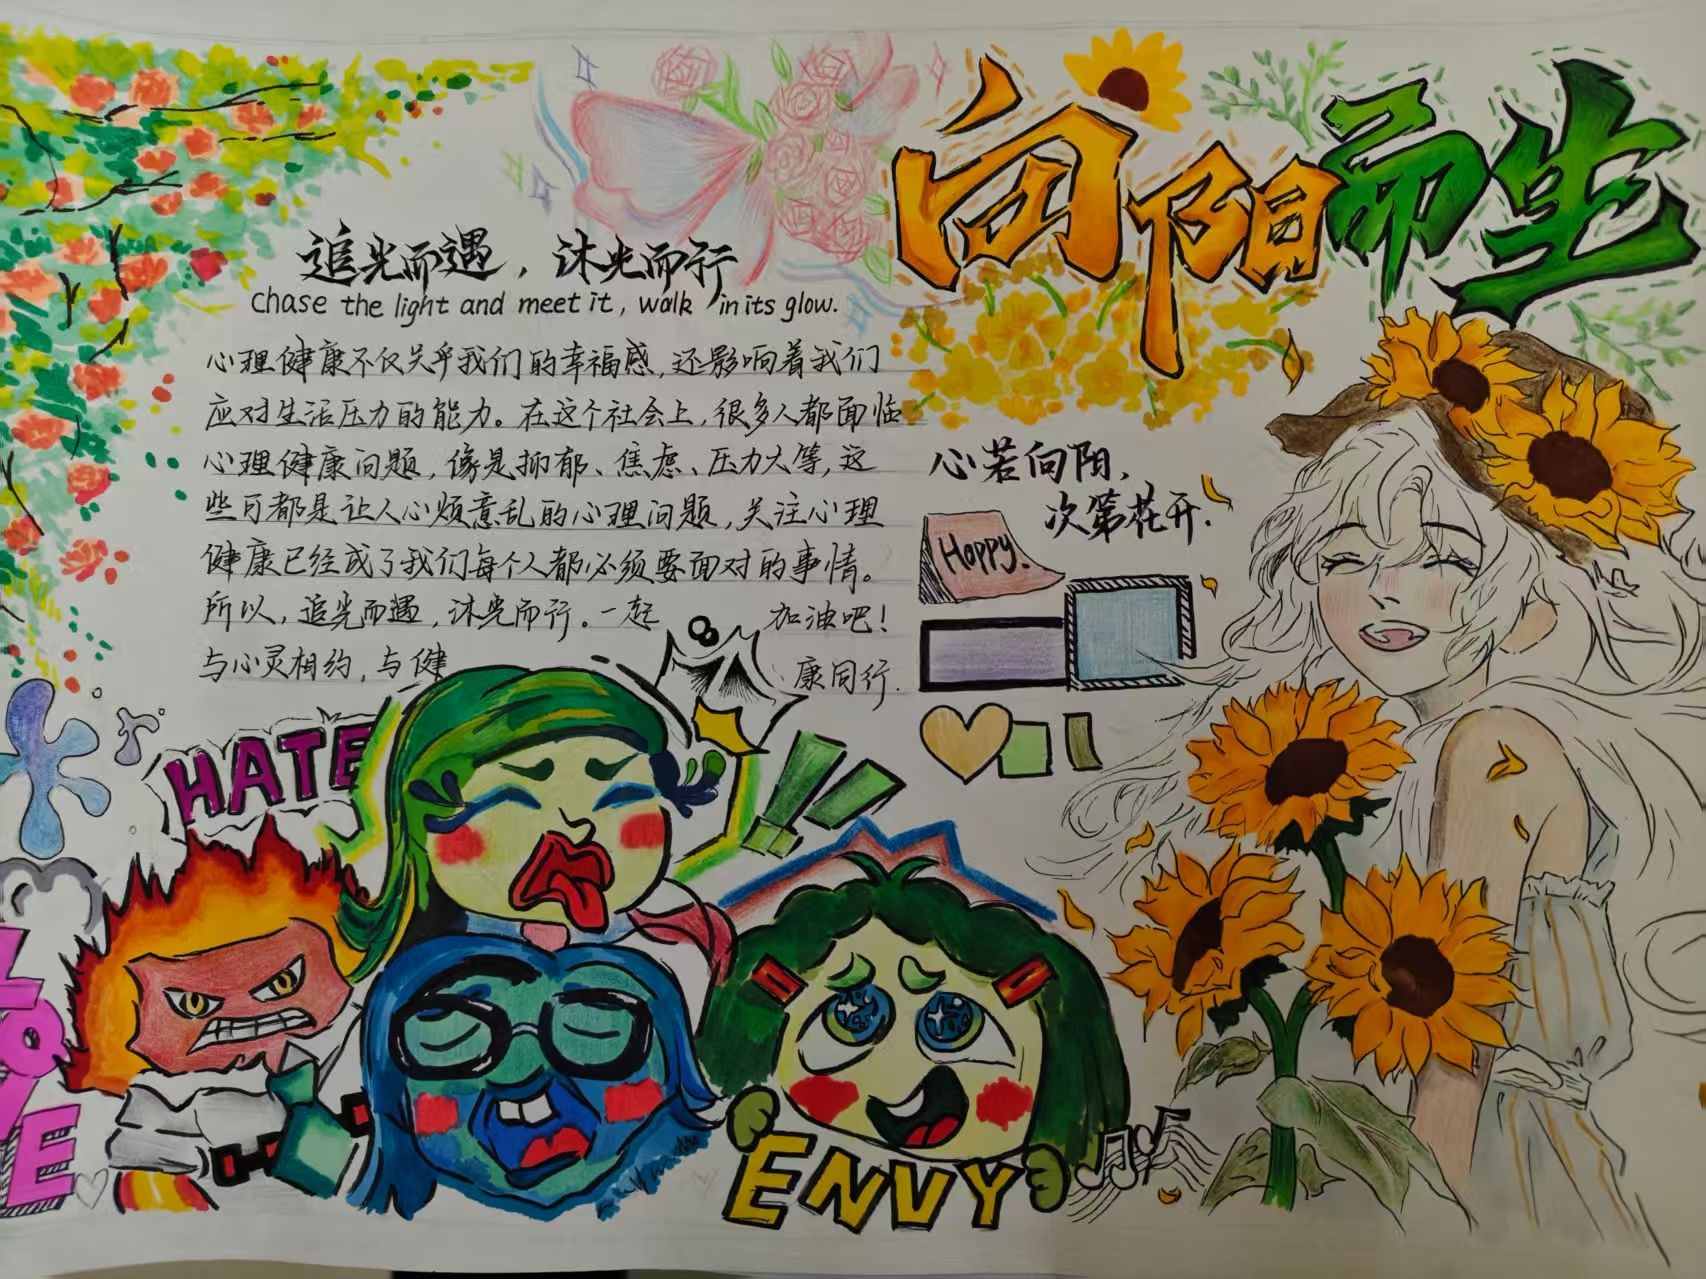 向阳而生
追光而遇，沐光而行
chase the light and meet it, walk in its glow.
心理健康不仅关乎我们的幸福感，还影响着我们
应对生活压力的能力。在这个社会上，很多人都面临
心理健康问题，像是抑郁、焦虑、压力大等，这
些可都是让人心烦意乱的心理问题，关注心理
健康已经成了我们每个人都必须要面对的事情。
所以，追光而遇，沐光而行。一起 加油吧！
与心灵相约，与健 康同行.
心若向阳，
次第花开.
Happy.
HATE
LOVE
ENVY